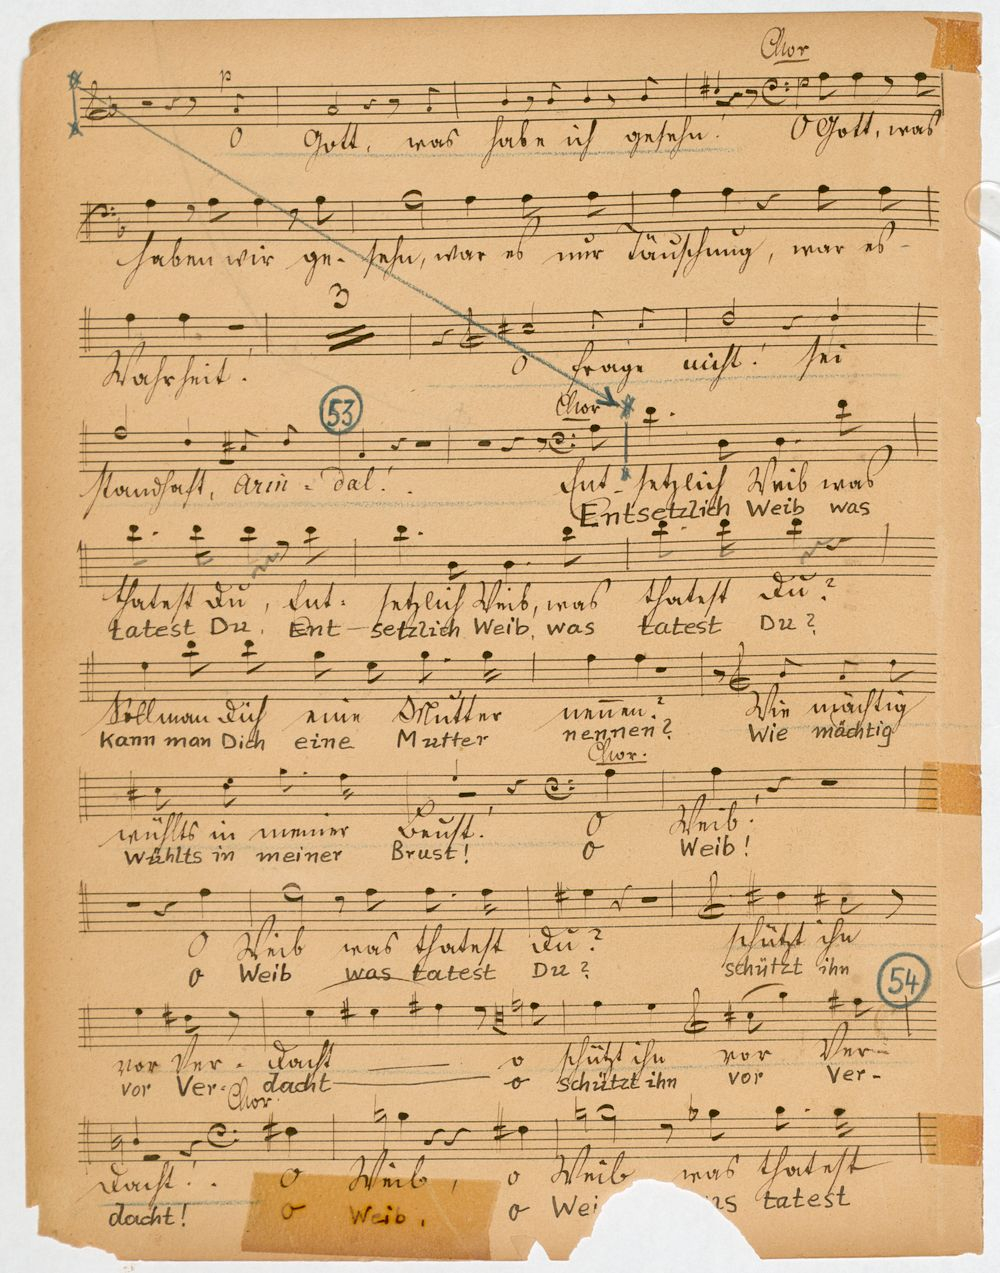 Chor
p
O Gott, was habe ich gesehn! O Gott, was
haben wir ge- sehn, war es nur Täuschung, war es-
3
Wahrheit! O frage nicht! sei
53
Chor
standhaft, Arin-dal! Ent-setzlich Weib was
Entsetzlich Weib was
thatest Du, Ent- setzlich Weib, was thatest Du?
tatest Du, Ent-setzlich Weib, was tatest Du?
Soll man Dich eine Mutter nennen? Wie mächtig
Kann man Dich eine Mutter nennen? Wie mächtig
Chor.
wühlts in meiner Brust! O Weib!
Wühlts in meiner Brust! O Weib!
O Weib was thatest Du? schützt ihn
O Weib was tatest Du? schützt ihn
54
vor Ver- dacht o schützt ihn vor Ver-
vor Ver- dacht o schützt ihn vor Ver-
Chor
dacht! O Weib, o Weib was thatest
dacht! O Weib, o tatest